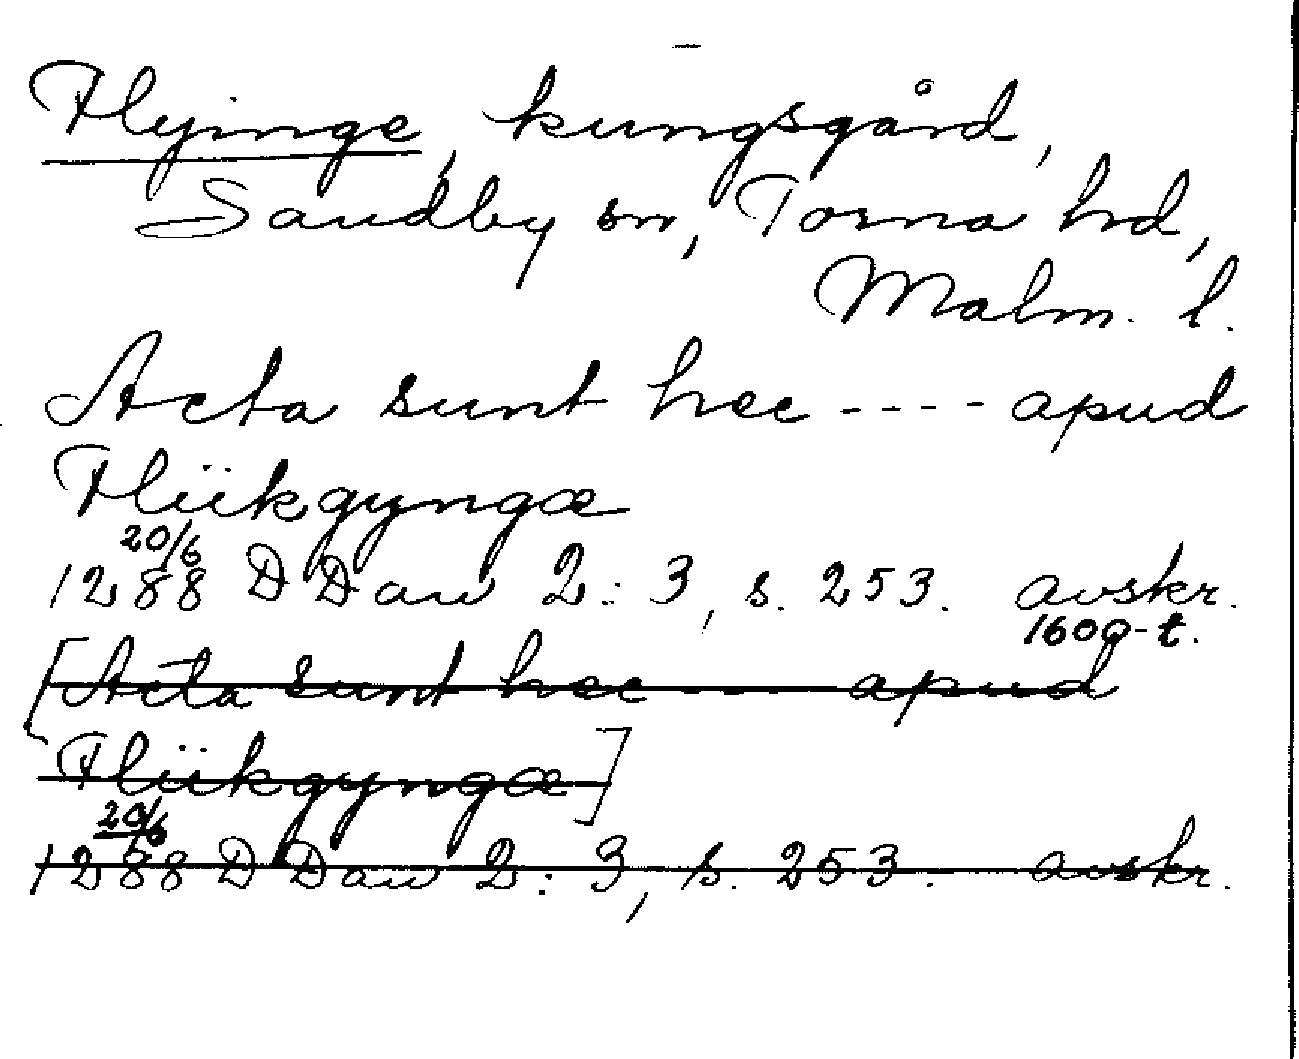 Flyinge, kungsgård,
Sandby sn, Torna hd,
Malm. l.
Acta sunt hec ---- apud
Fliikgyngæ
20/6
1288 D Dan 2:3, s. 253. avskr.
1600-t.
[Acta sunt hec ---- apud
Fliikgyngæ]
20/6
1288 D Dan 2:3, s. 253. avskr.